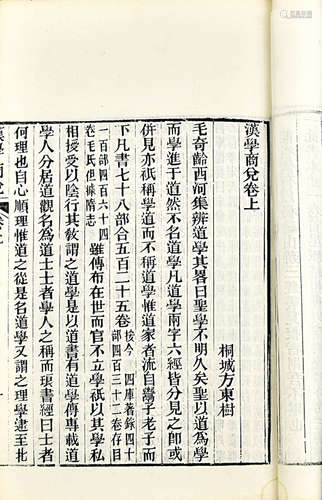 漢學商兌卷上
桐城方東樹
毛奇齡西河集辨道學其畧曰聖學不明久矣聖以道為學
而學進于道然不名道學凡道學兩字六經皆分見之即或
併見亦祇稱學道而不稱道學惟道家者流自鬻子老子而
下凡書七十八部合五百二十五卷按今四庫著錄四十四部四百三十二卷存目
一百部四百六十四卷毛氏但據隋志雖傳布在世而官不立學祇以其學私
相授受以陰行其敎謂之道學是以道書有道學傳專載道
學人分居道觀名為道士士者學人之稱而琅書經曰士者
何理也自心順理惟道之從是名道學又謂之理學逮至北